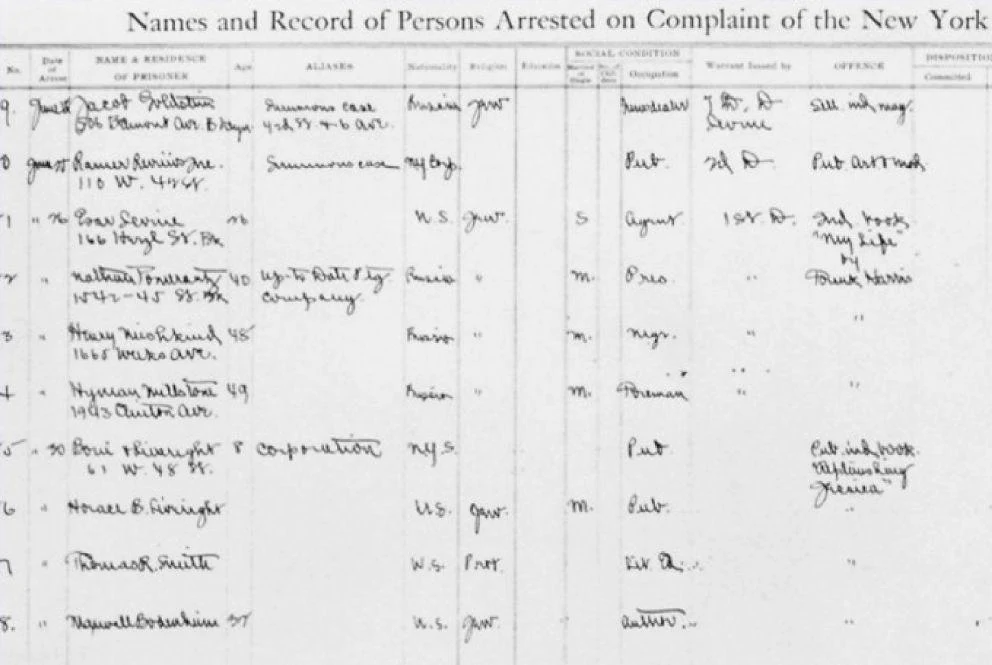 Names and Record of Persons Arrested on Complaint of the New York
No. Date of Arrest NAME & RESIDENCE OF PRISONER Age ALIASES Nationality Religion Education SOCIAL CONDITION Married or Single No. of Children Occupation Warrant Issued by OFFENCE DISPOSITION Committed
9. June Jacob Goldstein Summons case Russia Jew Newsdealer 7 D. Sell. ind. mag.
Ave. B'klyn 42d St. & 6 Ave. Levine
0 June Ramer Reviews Inc. Summons case NY Corp. Pub. 2d D. Pub. Art
110 W. 42 St.
1 " 26 Esar Levine 26 U.S. Jew. S Agent 1st. D. Ind. book
166 St. Bk "My Life"
by
2 " Nathan Pomerantz 40 Up-to Date Ptg Russia " M. Pres. " Frank Harris
1542-45 St. Bk company.
3 " Henry 48 Russia " M. Mgr. " "
1665 Weeks Ave.
4 " Hyman Millstone 49 Russia " M. Foreman " "
1943 Ave.
5 " 30 Boni & Liveright 8 corporation NYS. Pub. Pub. ind. book
61 W. 48 St. "Replenishing
Jessica"
6 " Horace B. Liveright U.S. Jew. M. Pub. "
7 " Thomas R. Smith U.S. Prot. Lit. Ed. "
8. " Maxwell Bodenheim 37 U.S. Jew. author. "